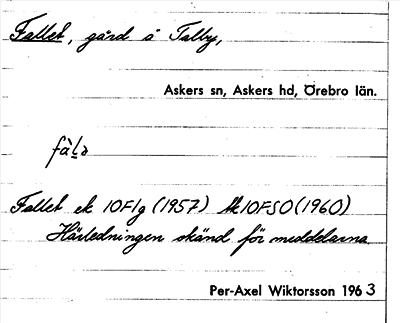 Fallet, gård å Talby,
Askers sn, Askers hd, Örebro län.
fàḷə
Fallet ek 10F1g (1957) tk 10FSO (1960)
Härledningen okänd för meddelarna
Per-Axel Wiktorsson 1963